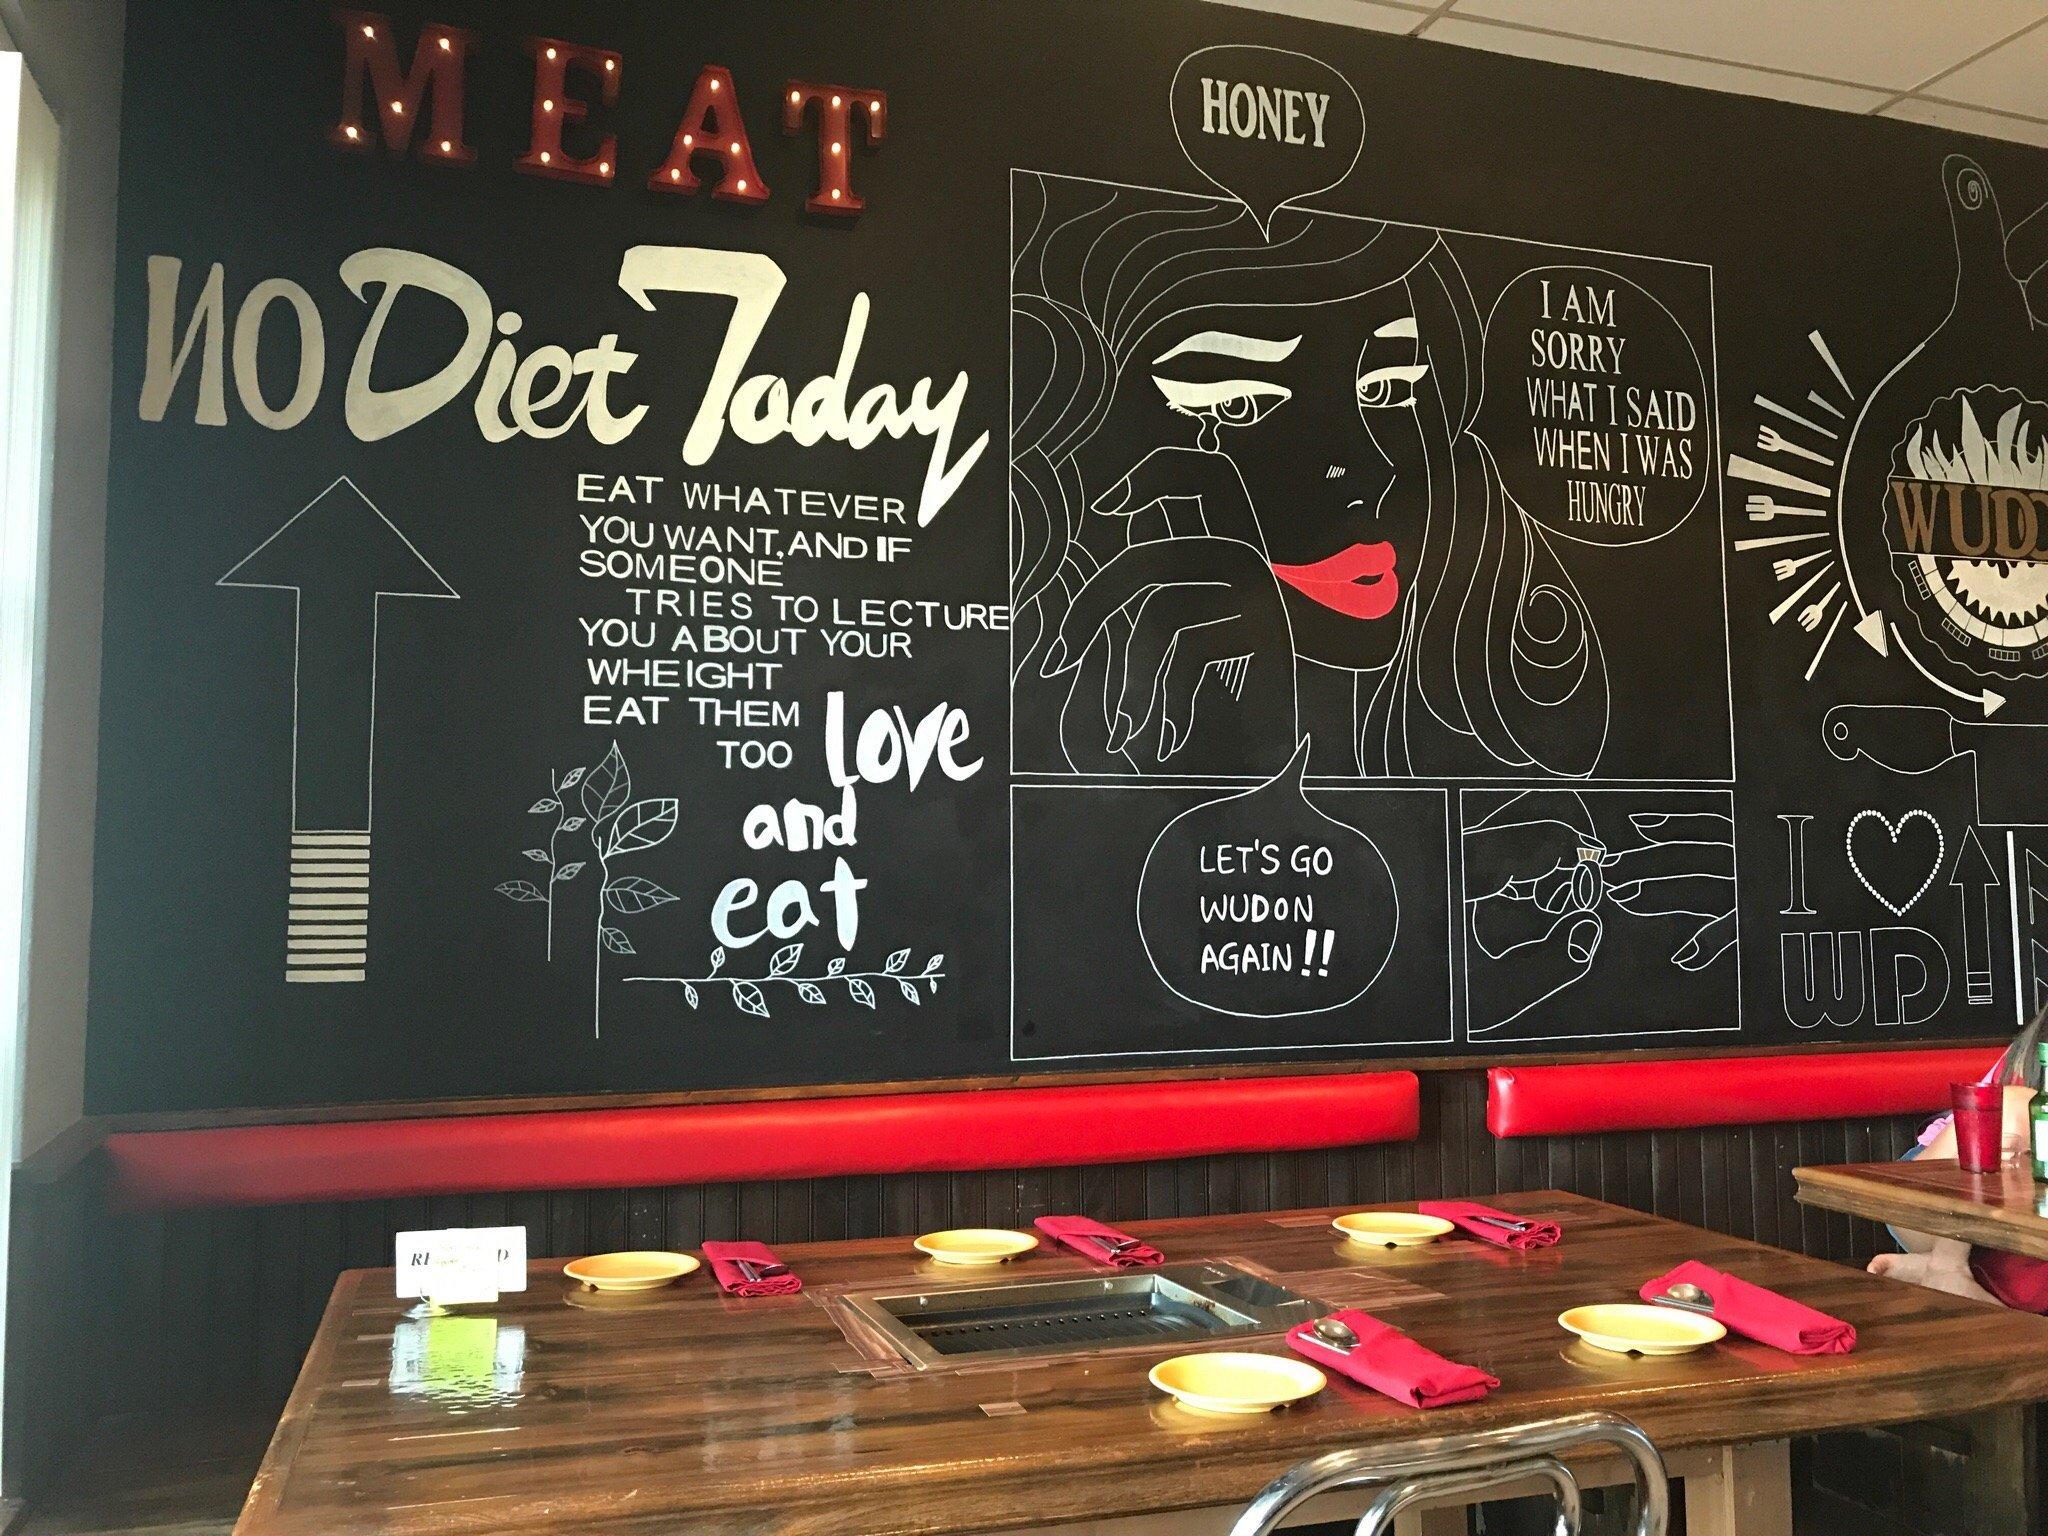 MEAT
NO Diet Today
EAT WHATEVER
YOU WANT, AND IF
SOMEONE
TRIES TO LECTURE
YOU ABOUT YOUR
WHEIGHT
EAT THEM
TOO
love
and
eat
HONEY
I AM
SORRY
WHAT I SAID
WHEN I WAS
HUNGRY
LET'S GO
WUDON
AGAIN!!
I
WD